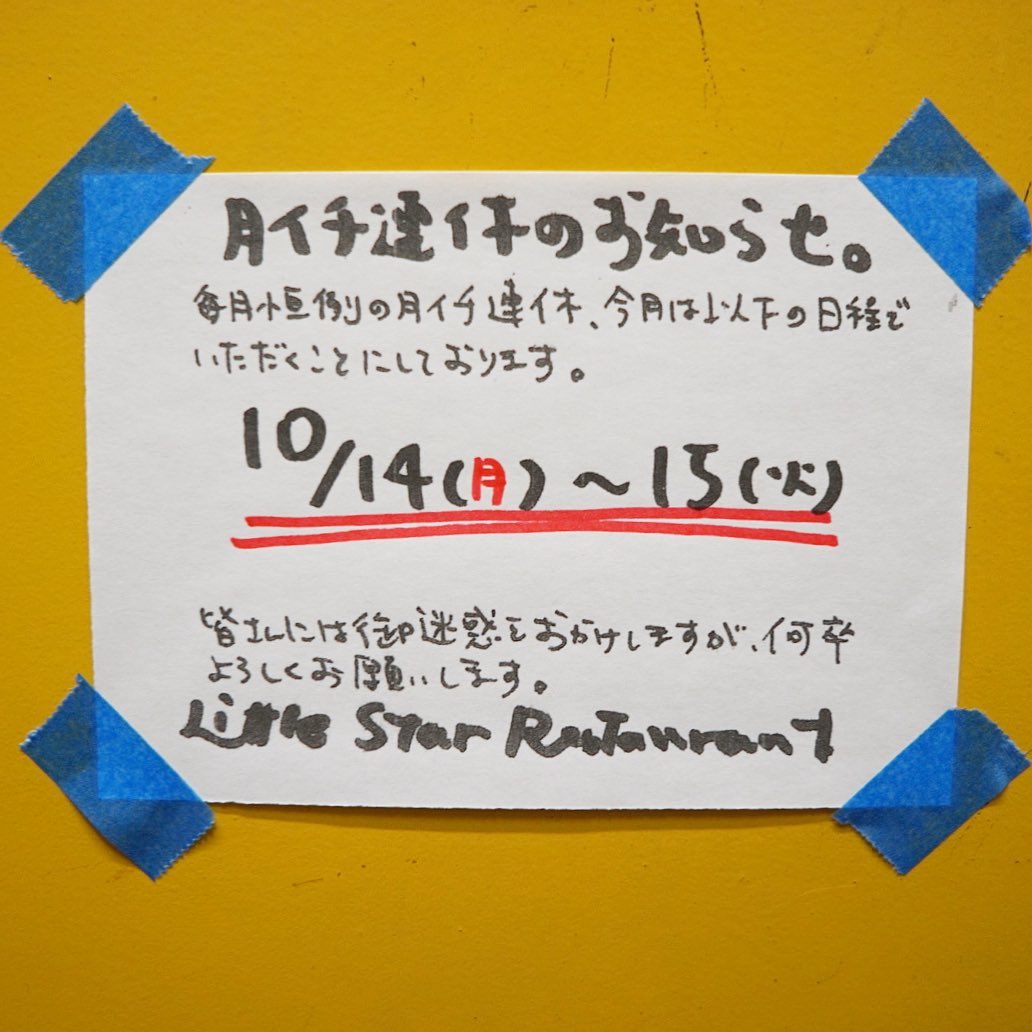 月イチ連休のお知らせ。
毎月恒例の月イチ連休、今月は以下の日程で
いただくことにしております。
10/14(月)〜15(火)
皆さんには御迷惑をおかけしますが、何卒
よろしくお願いします。
Little Star Restaurant